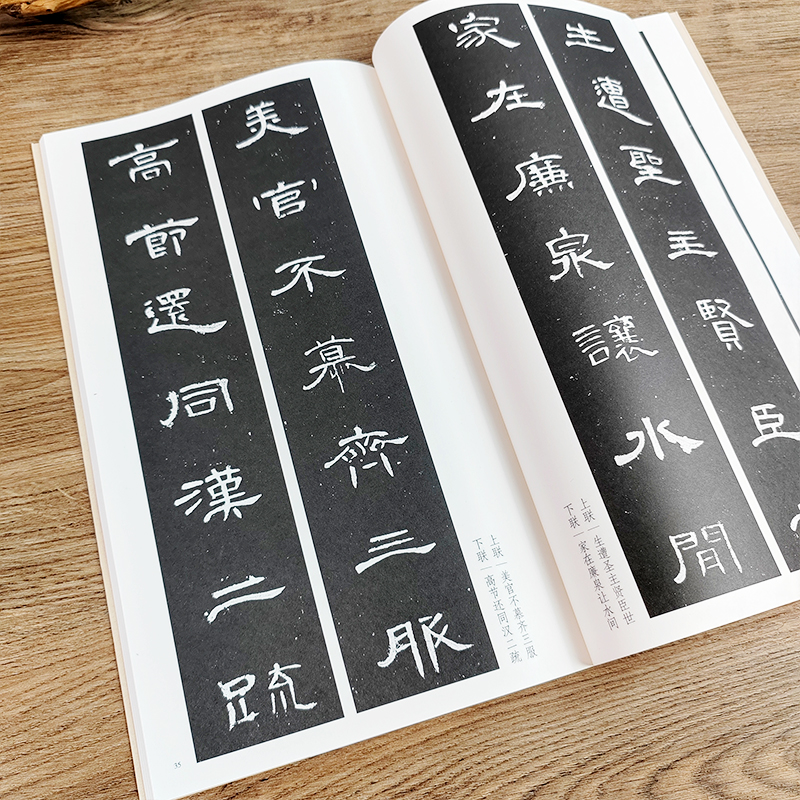 美官不慕齊三服
高節還同漢二疏
上联｜美官不慕齐三服
下联｜高节还同汉二疏
35
生遭聖主賢臣
家在廉泉讓水閒
上联｜生遭圣主贤臣世
下联｜家在廉泉让水间